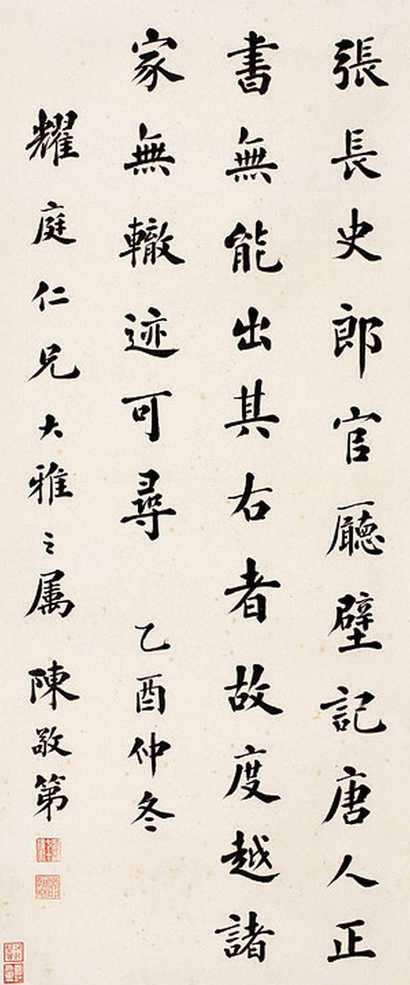 張長史郎官廳壁記唐人正
書無能出其右者故度越諸
家無轍迹可尋 乙酉仲冬
耀庭仁兄大雅之属 陳敬第